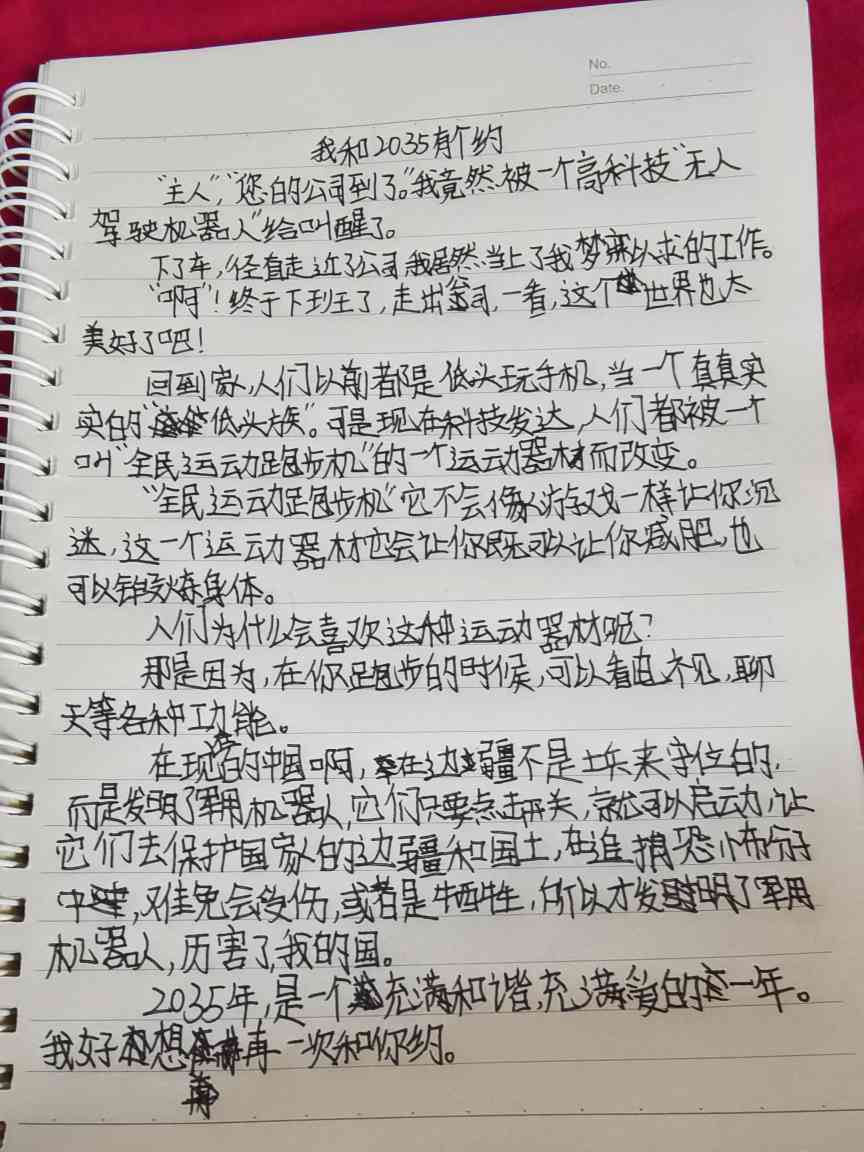 No.
Date.
我和2035有个约
“主人”,“您的公司到了。”我竟然被一个高科技“无人
驾驶机器人”给叫醒了。
下了车,径直走近了公司,我居然当上了我梦寐以求的工作。
“啊”!终于下班了,走出公司,一看,这个世界也太
美好了吧!
回到家,人们以前都是低头玩手机,当一个真真实
实的“低头族”。可是现在科技发达,人们都被一个
叫“全民运动跑步机”的一个运动器材而改变。
“全民运动跑步机”它不会像游戏一样让你沉
迷,这一个运动器材它会让你既可以让你减肥,也
可以锻炼身体。
人们为什么会喜欢这种运动器材呢?
那是因为,在你跑步的时候,可以看电视,聊
天等各种功能。
在现在的中国啊,在边疆不是士兵来守位的,
而是发明了军用机器人,它们只要点击开关,就可以启动,让
它们去保护国家的边疆和国土,在追捕恐怖分子
中,难免会受伤,或者是牺牲,所以才发明了军用
机器人,厉害了,我的国。
2035年,是一个充满和谐,充满爱的一年。
我好想再一次和你约。